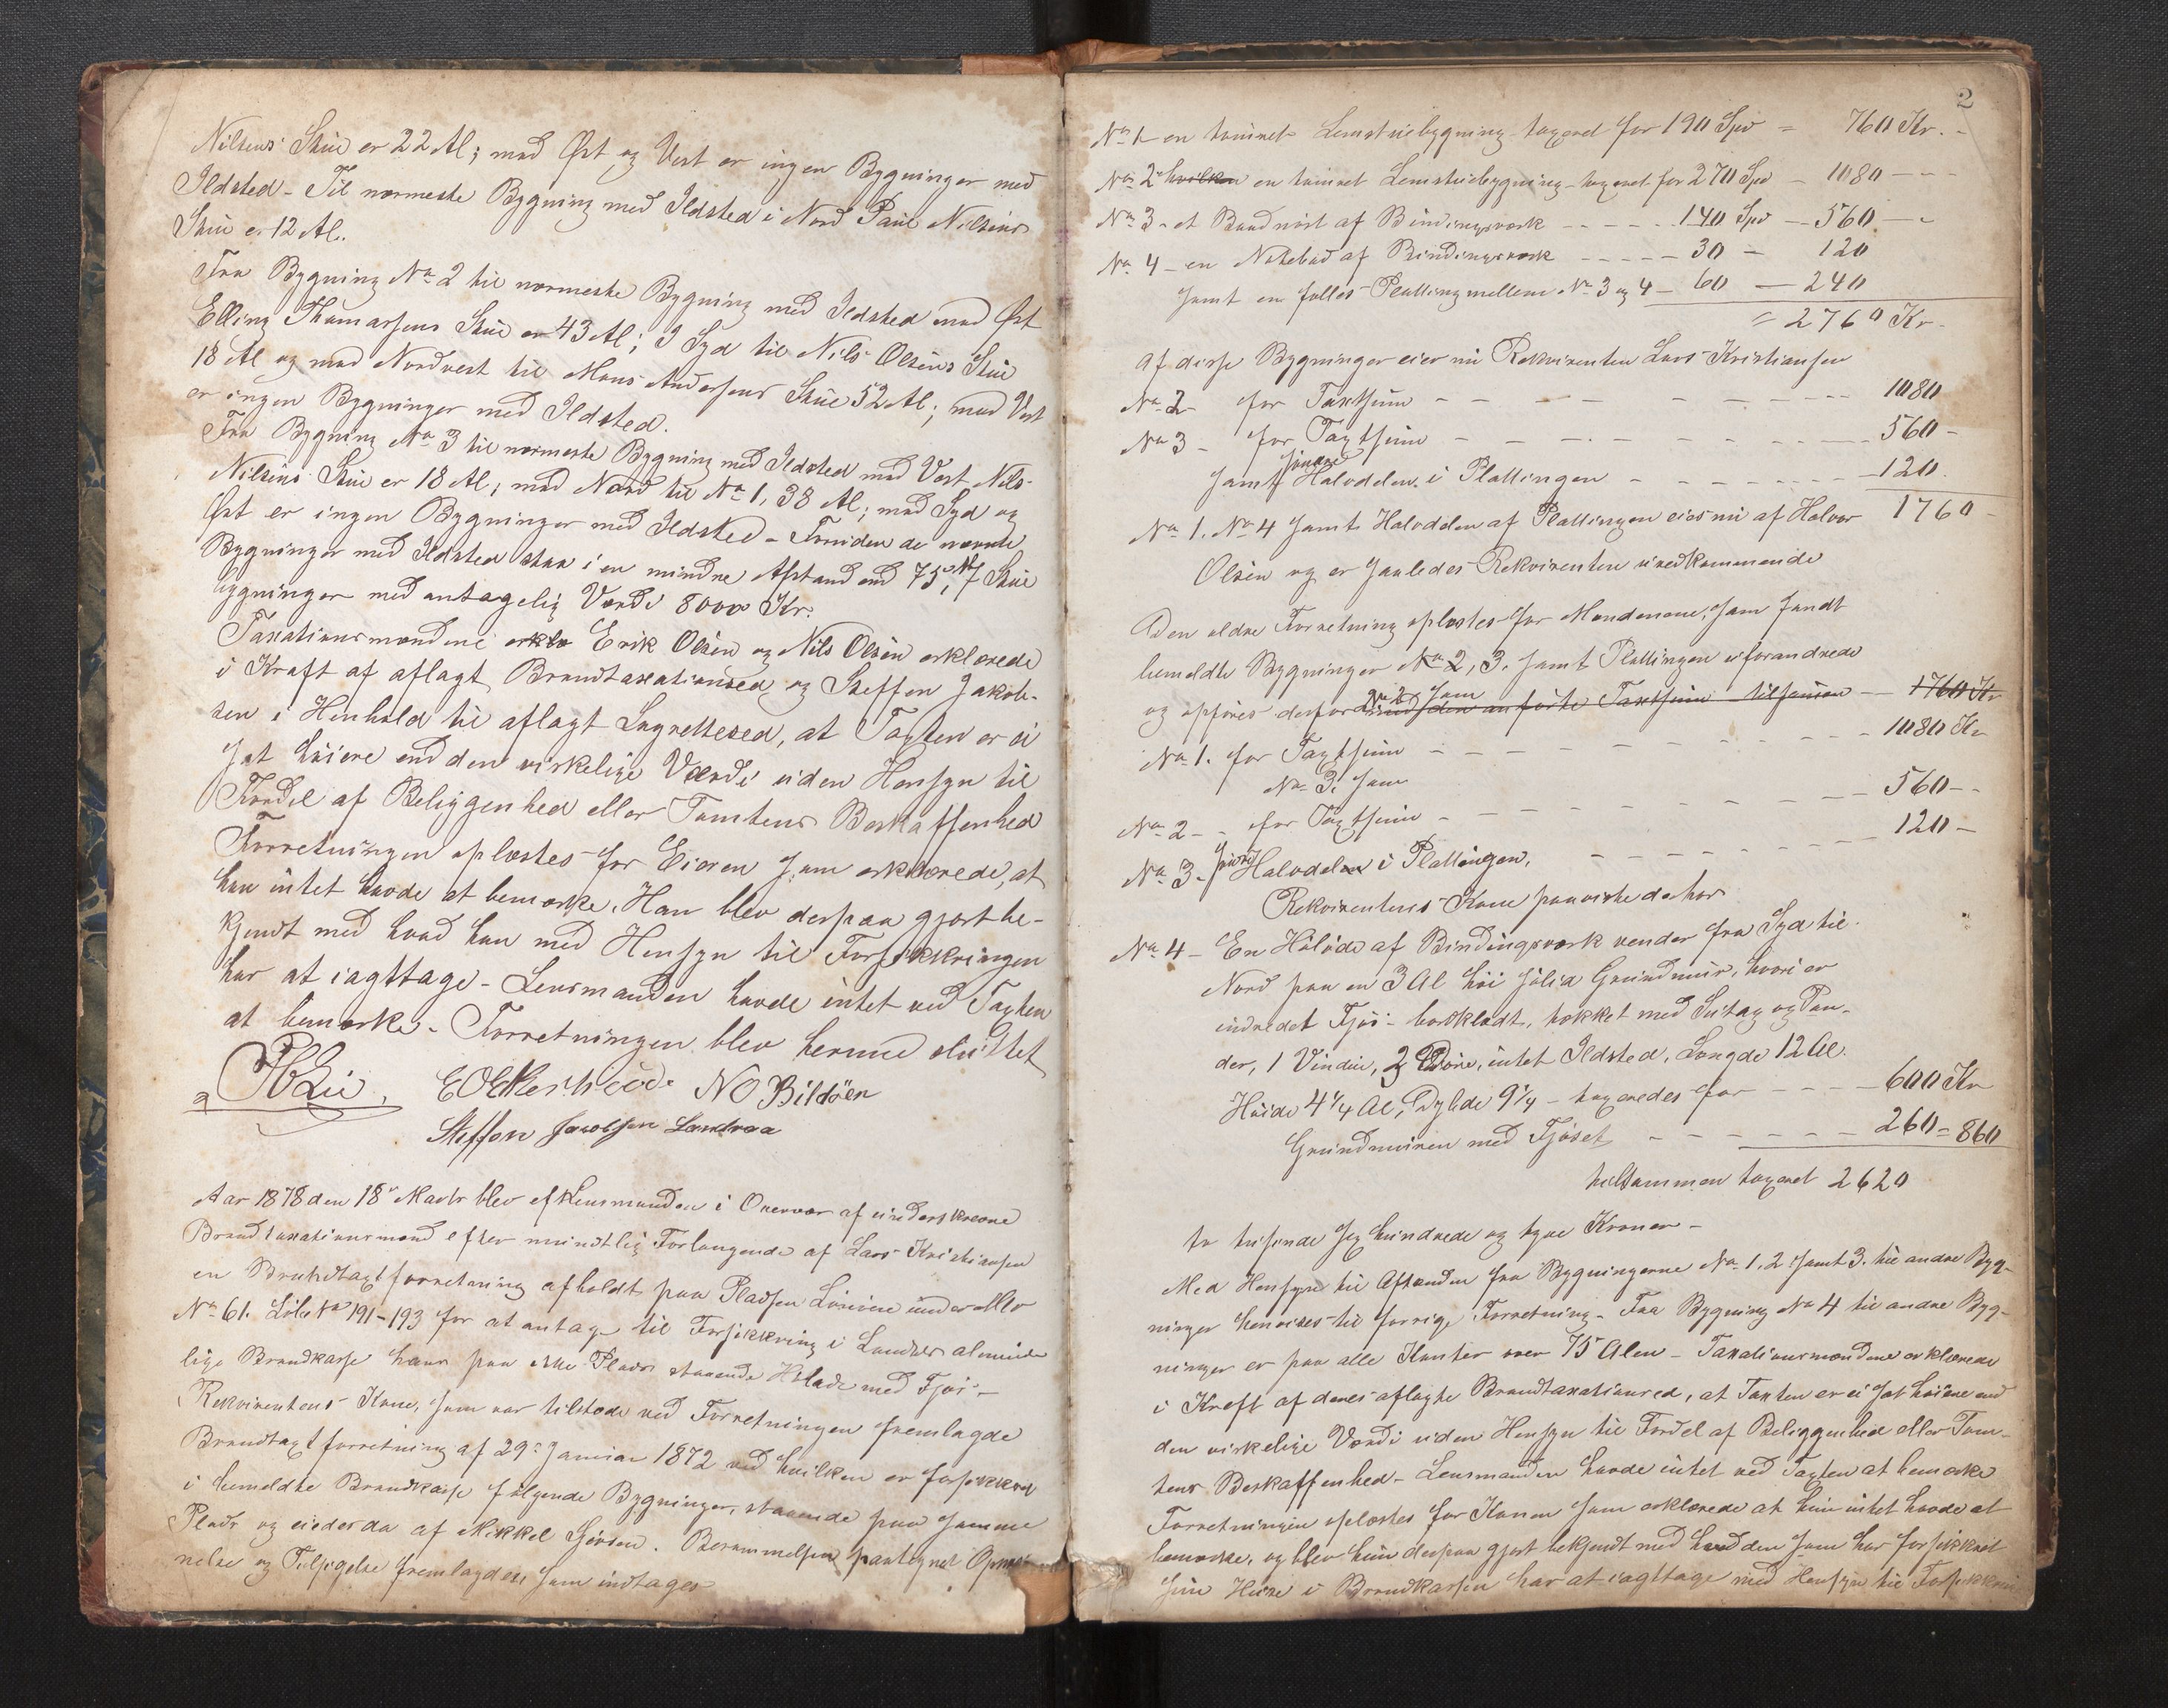 Nilsens Stue er 22 Al; mod Øst og Vest er ingen Bygninger med
Ildsted – Til nærmeste Bygning med Ildsted i Nord Paul Nilsens
Stue er 12 Al.
Fra Bygning No 2 til nærmeste Bygning med Ildsted mod Øst
Elling Thomassens Stue er 43 Al; I Syd til Nils Olsens Stue
18 Al og mod Nordvest til Mons Andersens Stue 52 Al; mod Vest
er ingen Bygninger med Ildsted.
Fra Bygning No 3 til nærmeste Bygning med Ildsted mod Vest Nils
Nilsens Stue er 18 Al, mod Nord til No 1, 38 Al; mod Syd og
Øst er ingen Bygninger med Ildsted – Foruden de nævnte
Bygninger med Ildsted staa i en mindre Afstand end 75 Al, 7 Stue
bygninger med antagelig Værdi 8000 Kr.
Taxationsmændene erklæ Erik Olsen og Nils Olsen erklærede
i Kraft af aflagt Brandtaxationsed og Steffen Jakob-
sen i Henhold til aflagt Lagrettesed, at Taxten er ei
sat høiere end den virkelige Værdi uden Hensyn til
Fordel af Beliggenhed eller Tomtens Beskaffenhed
Forretningen oplæstes for Eieren som erklærede, at
han intet havde at bemærke. Han blev derpaa gjort be-
kjendt med hvad han med Hensyn til Forsikkringen
har at iagttage – Lensmanden havde intet ved Taxten
at bemærke – Forretningen blev hermed sluttet
NO Bildöen
Steffen Jacobsen Landraa
Aar 1878 den 18 Marts blev af Lensmanden i Overvær af underskrevne
Brandtaxationsmænd efter mundtlig Forlangende af Lars Kristiansen
en Brandtaxtforretning afholdt paa Pladsen under
No 61. Løbe No 191–193 for at antage til Forsikkring i Landets alminde
lige Brandkasse hans paa Plads staaende Hølade med Fjøs –
Rekvirentens Kone, som var tilstede ved Forretningen fremlagde
Brandtaxtforretning af 29 Januar 1872 ved hvilken er forsikkret
i bemeldte Brandkasse følgende Bygninger, staaende paa samme
Plads og eiedes da af Mikkel. Berammelsen paategnet
nelse og Tilsigelse fremlagdes som indtages
2
No 1 en tømret Lemstuebygning taxeret for 190 Spd = 760 Kr. –
No 2 hvilken en tømret Lemstuebygning taxeret for 270 Spd – 1080 – –
No 3 – et Baadnøst af Bindingsværk – – – – – 140 Spd – 560 –
No 4 – en Notebod af Bindingsværk – – – – – 30 – 120
samt en fælles Platting mellem No 3 og 4 – 60 – 240
= 2760 Kr.
Af disse Bygninger eier nu Rekvirenten Lars Kristiansen
No 2 – for Taxtsum – – – – – – 1080
No 3 – for Taxtsum – – – – – – 560 –
samt Halvdelen i Plattingen – – – – – – 120
1760 –
No 1. No 4 samt Halvdelen af Plattingen eies nu af Halvor
Olsen og er saaledes Rekvirenten uvedkommende
Den ældre Forretning oplæstes for Mændenene, som fandt
bemeldte Bygninger No 2, 3. samt Plattingen uforandrede
og opføres derfor med den anførte Taxtsum tilsammen – 1760 Kr
No 2 som
No 1. for Taxtsum – – – – – – 1080 Kr
No 3. som
No 2 – for Taxtsum – – – – – – 560 –
No 3 – Halvdelen i Plattingen, – – – – – – 120 –
Rekvirentens Kone paaviste derhos
No 4 – En Hølade af Bindingsværk vender fra Syd til
Nord paa en 3 Al høi solid Grundmur, hvori er
indredet Fjøs – bordklædt, tækket med Sutag og Pan-
der, 1 Vindu, 2 Døre, intet Ildsted, Længde 12 Al.
Høide 4 1/4 Al, Dybde 9 1/4 – taxeredes for – – – – 600 Kr
Grundmuren med Fjøset – – – – – – 260 = 860
tilsammen taxeret 2620
to tusinde sex hundrede og tyve Kroner –
Med Hensyn til Afstanden fra Bygningerne No 1, 2 samt 3. til andre Byg-
ninger henvises til forrige Forretning – Fra Bygning No 4 til andre Byg-
ninger er paa alle Kanter over 75 Alen – Taxationsmændene erklærede
i Kraft af deres aflagte Brandtaxationsed, at Taxten er ei sat høiere end
den virkelige Værdi uden Hensyn til Fordel af Beliggenhed eller Tom-
tens Beskaffenhed – Lensmanden havde intet ved Taxten at bemærke
Forretningen oplæstes for Konen som erklærede at hun intet havde at
bemærke, og blev hun derpaa gjort bekjendt med hvad den som har forsikkret
sine Huse i Brandkassen har at iagttage med Hensyn til Forsikkrin